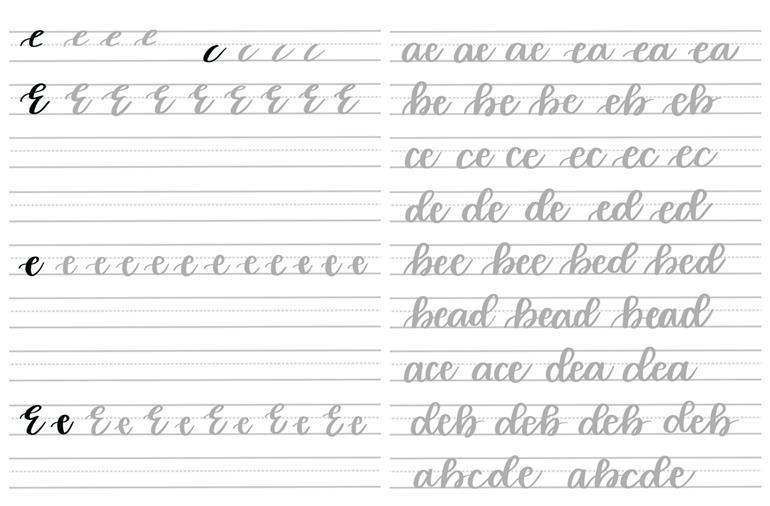 e e e e c c c c
E E E E E E E E E
e e e e e e e e e e e e
Ee Ee Ee Ee Ee Ee
ae ae ae ea ea ea
be be be eb eb
ce ce ce ec ec ec
de de de ed ed
bee bee bed bed
bead bead bead
ace ace dea dea
deb deb deb deb
abcde abcde